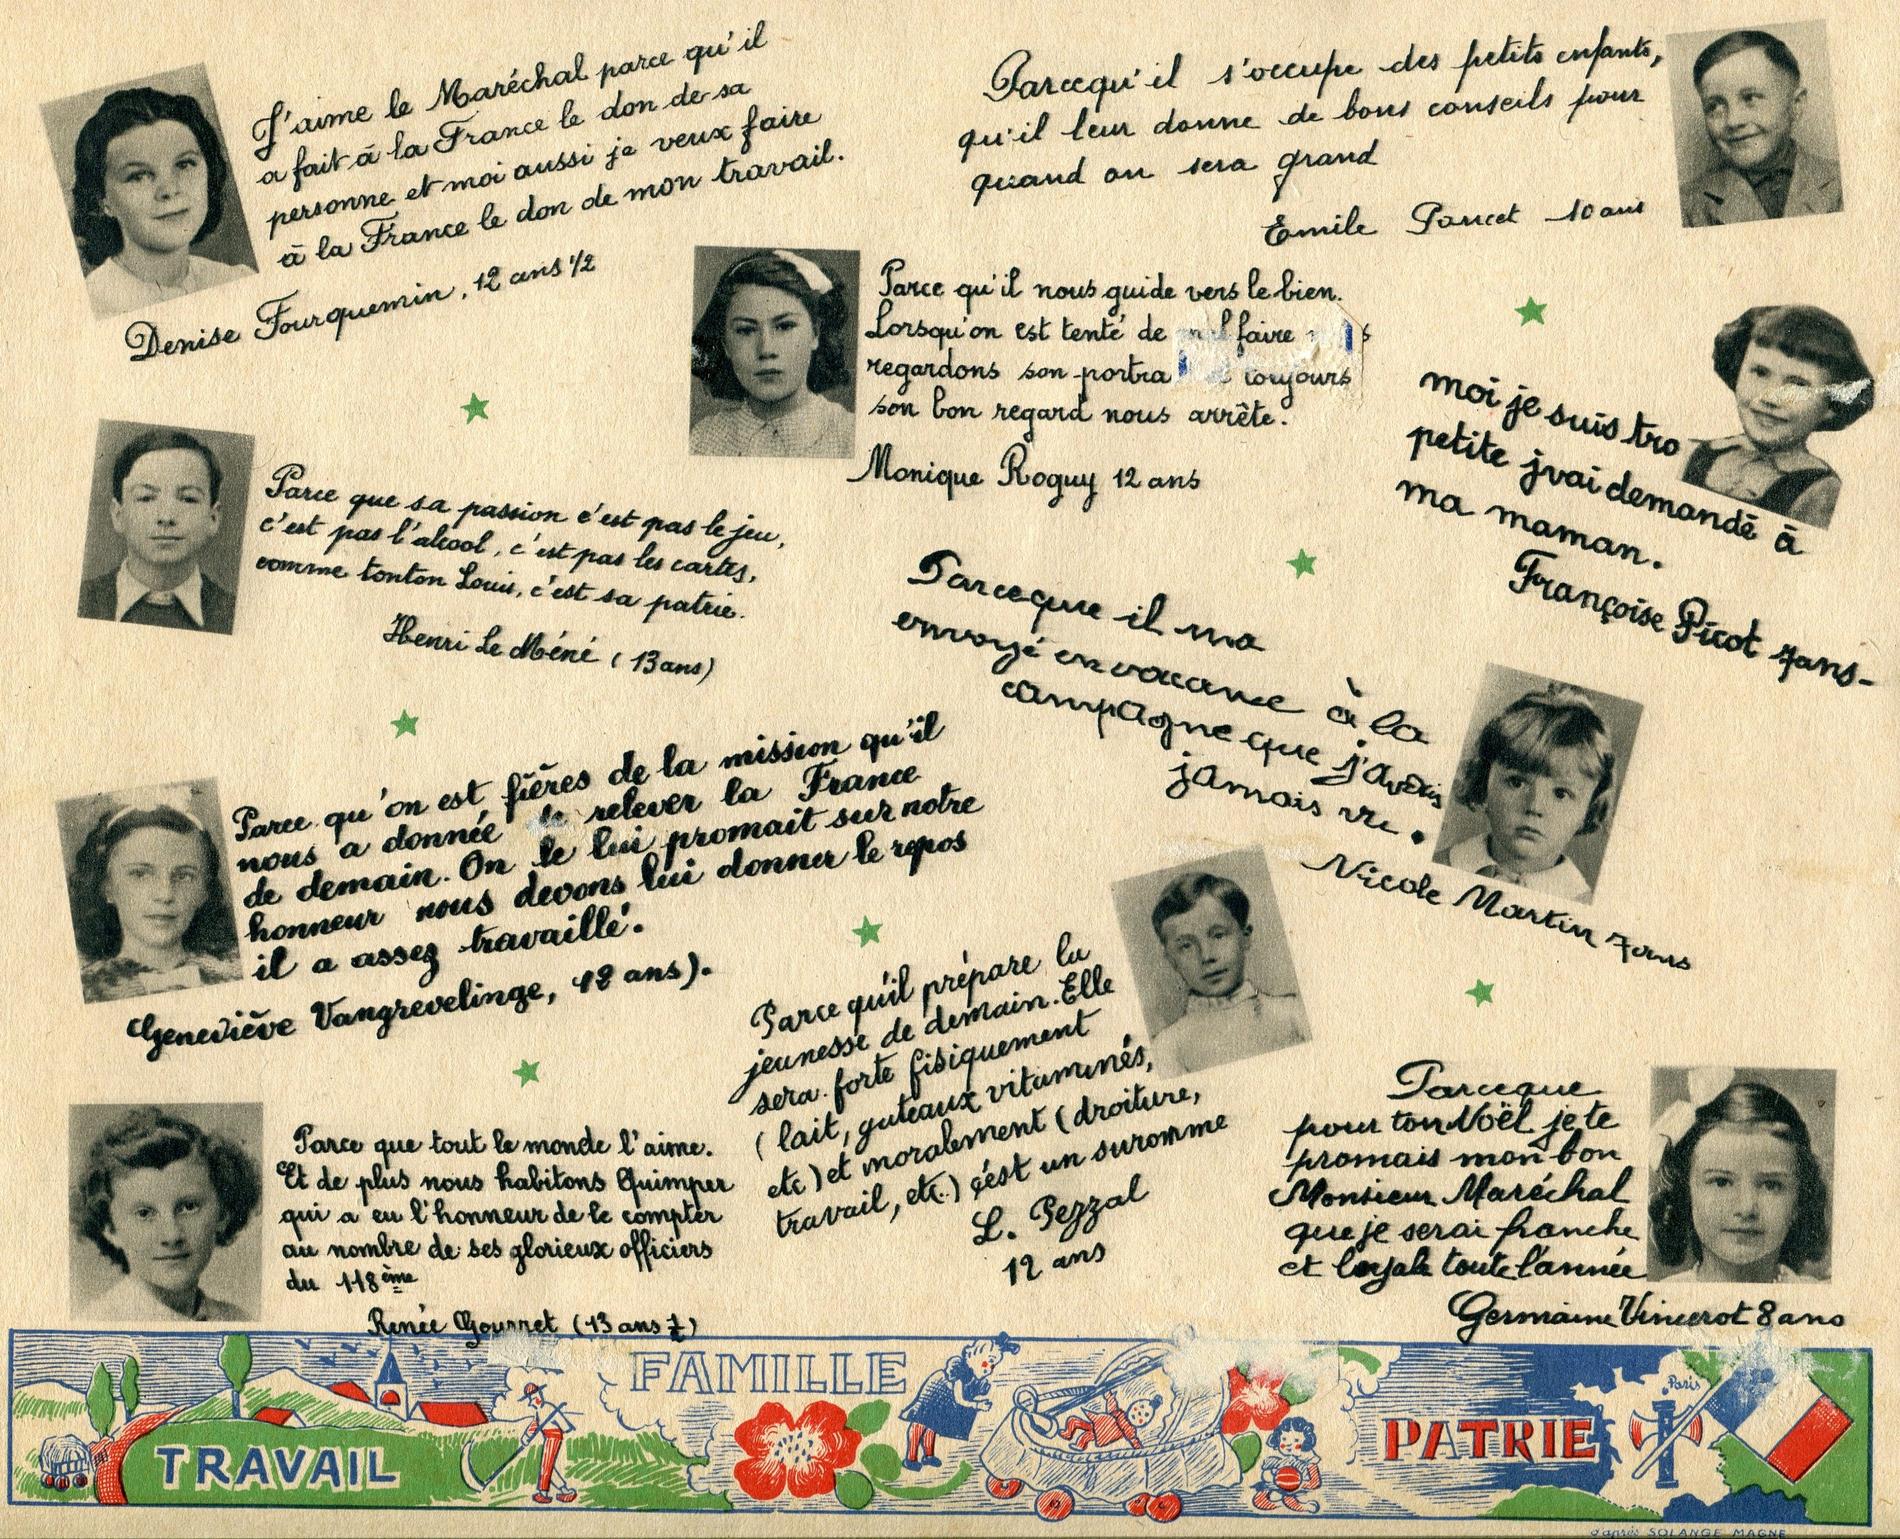 J'aime le Maréchal parce qu'il
a fait à la France le don de sa
personne et moi aussi je veux faire
à la France le don de mon travail.
Denise Fourquemin, 12 ans 1/2
Parcequ'il s'occupe des petits enfants,
qu'il leur donne de bons conseils pour
quand on sera grand
Emile Poucet 10 ans
Parce qu'il nous guide vers le bien.
Lorsqu'on est tenté de mal faire
regardons son portra toujours
son bon regard nous arrête.
Monique Roguy 12 ans
moi je suis tro
petite jvai demandé à
ma maman.
Françoise Picot 7 ans-
Parce que sa passion c'est pas le jeu,
c'est pas l'alcool, c'est pas les cartes,
comme tonton Louis, c'est sa patrie.
Henri Le Méné (13 ans)
Parceque il ma
envoyé en vacance à la
campagne que j'avais
jamais vu.
Nicole Martin 7 ans
Parce qu'on est fières de la mission qu'il
nous a donnée de relever la France
de demain. On le lui promait sur notre
honneur nous devons lui donner le repos
il a assez travaillé.
Geneviève Vangrevelinge, 12 ans).
Parce qu'il prépare la
jeunesse de demain. Elle
sera forte fisiquement
(lait, gateaux vitaminés,
etc) et moralement (droiture,
travail, etc.) c'ést un suromme
L. Pezzal
12 ans
Parce que tout le monde l'aime.
Et de plus nous habitons Quimper
qui a eu l'honneur de le compter
au nombre de ses glorieux officiers
du 118ème
Renée Gourret (13 ans ½)
Parceque
pour ton Noël je te
promais mon bon
Monsieur Maréchal
que je serai franche
et loyale toute l'année
Germaine Vincerot 8 ans
TRAVAIL
FAMILLE
PATRIE
Paris
d'après SOLANGE MAGNE